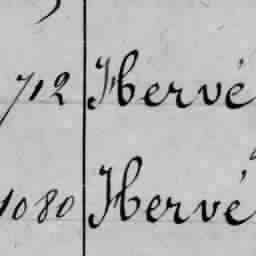 712 Hervé
1080 Hervé